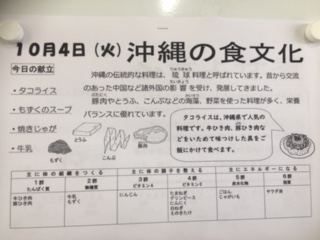 10月4日（火）沖縄の食文化
今日の献立
・タコライス
・もずくのスープ
・焼きじゃが
・牛乳
沖縄の伝統的な料理は、琉球料理と呼ばれています。昔から交流
りゅうきゅうりょうり
のあった中国など諸外国の影響を受け、発展してきました。
豚肉やとうふ、こんぶなどの海藻、野菜を使った料理が多く、栄養
バランスに優れています。
もずく
とうふ
こんぶ
豚肉
タコライスは、沖縄県で人気の
料理です。牛ひき肉、豚ひき肉な
どをいためて味つけした具を
ご飯にかけて食べます。
主に体の組織を作る
主に体の調子を整える
主にエネルギーになる
1群
たんぱく質
2群
無機質
3群
ビタミンA
4群
ビタミンC
5群
炭水化物
6群
脂質
牛ひき肉
豚ひき肉
牛乳
もずく
にんじん
たまねぎ
グリンピース
にんにく
えのきたけ
ごはん
じゃがいも
サラダ油